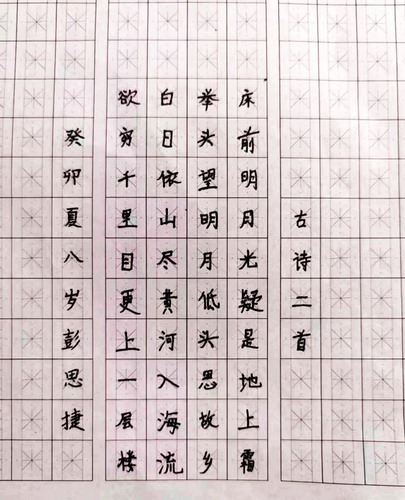 古诗二首
床前明月光疑是地上霜
举头望明月低头思故乡
白日依山尽黄河入海流
欲穷千里目更上一层楼
癸卯夏八岁彭思捷